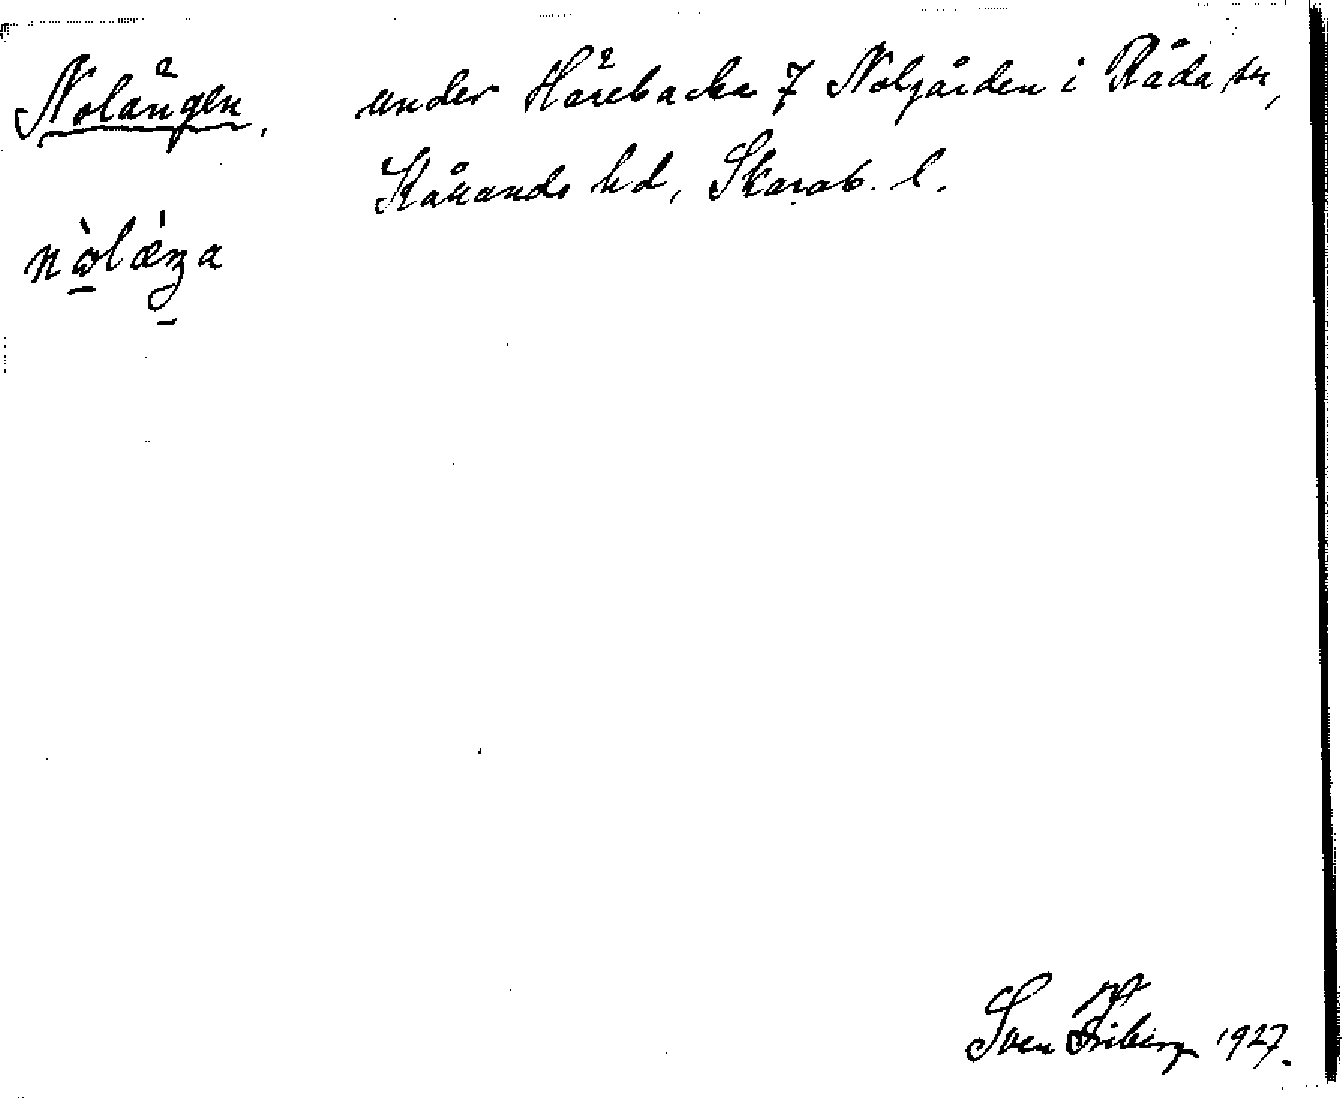 Nolängen, under Härebacka 7 Nolgården i Råda sn,
Kållands hd, Skarab. l.
nòlǽŋa
Sven Friberg 1927.